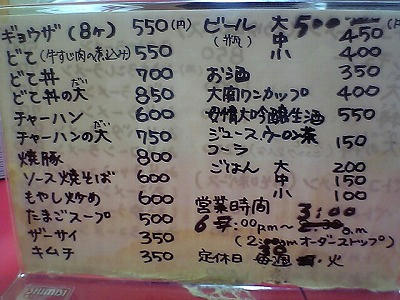 ギョウザ (8ヶ) 550(円)
どて(牛すじ肉の煮込み) 550
どて丼 700
どて丼の大(だい) 850
チャーハン 600
チャーハンの大(だい) 750
焼豚 800
ソース焼そば 600
もやし炒め 600
たまごスープ 500
ザーサイ 350
キムチ 350
ビール 大 500
中 450
小 400
お酒 350
大関ワンカップ 400
大吟醸生酒 550
ジュース ウーロン茶
コーラ 150
ごはん 大 200
中 150
小 100
営業時間 3:00
6:00pm〜 a.m
(2:00mオーダーストップ)
定休日 毎週 火